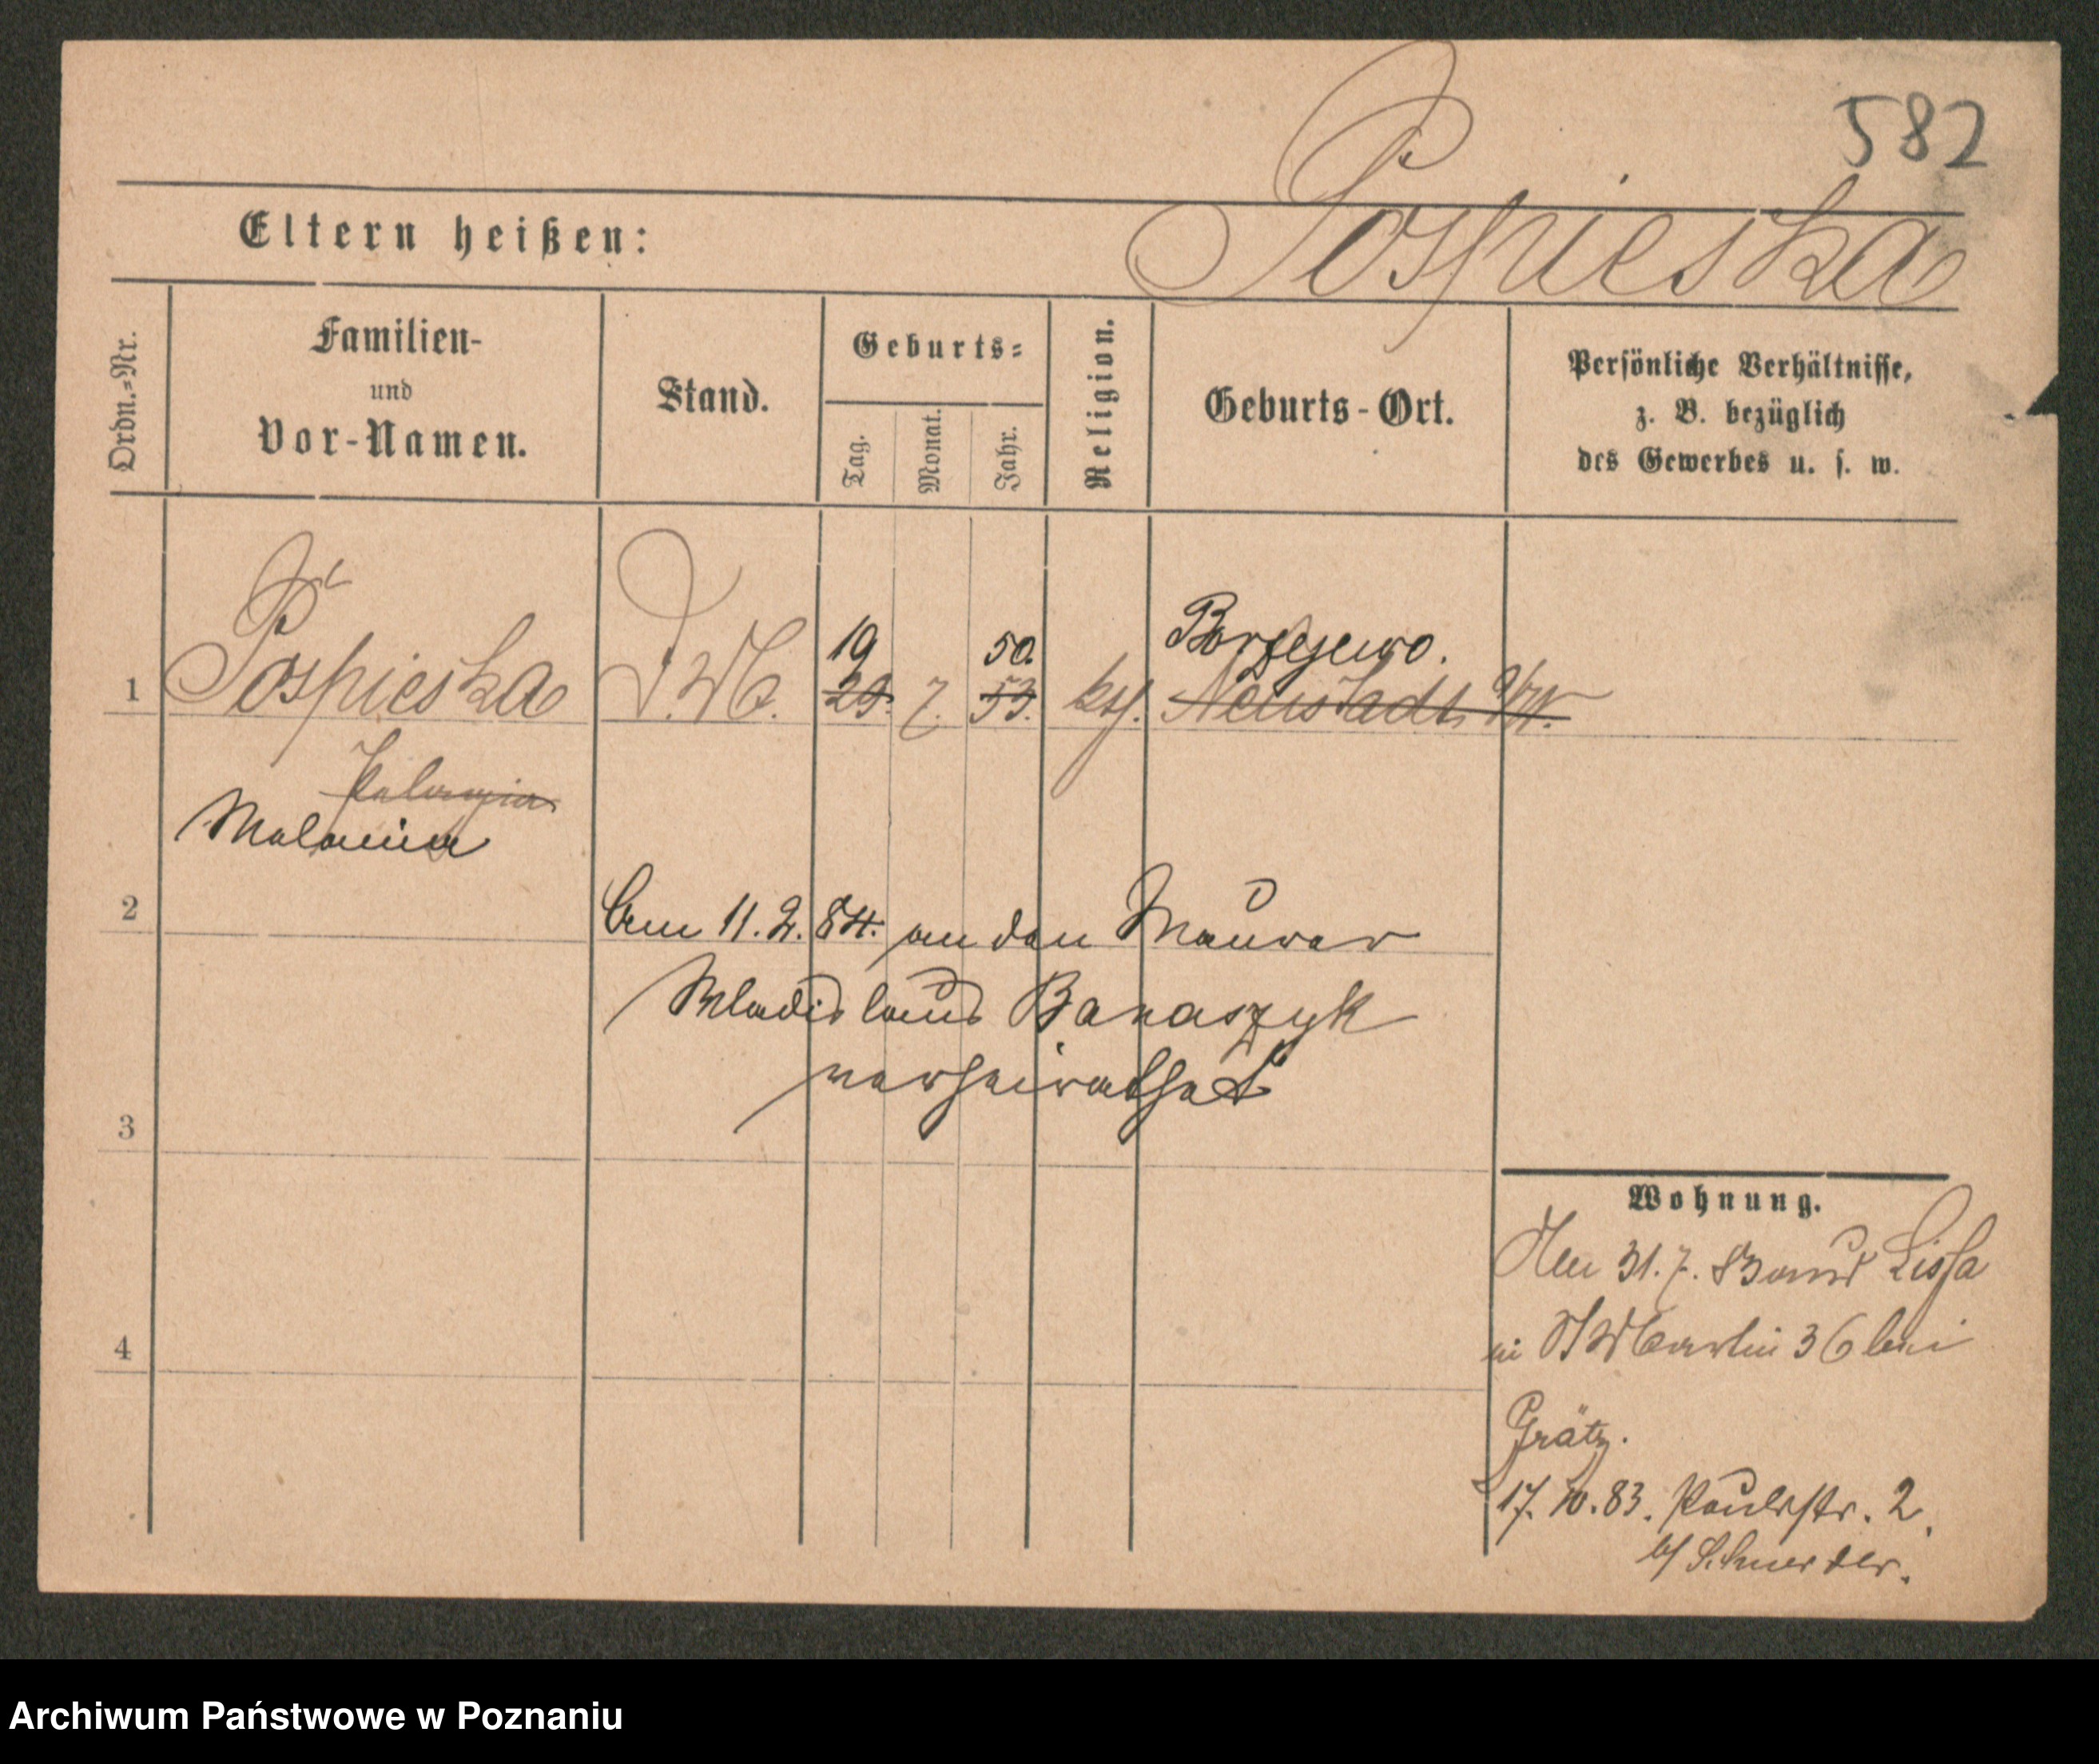 582
Pospieska
Eltern heißen:
Ordn.-Nr.
Familien-
und
Vor-Namen.
Stand.
Geburts-
Tag.
Monat.
Jahr.
Religion.
Geburts-Ort.
Persönliche Verhältnisse,
z. B. bezüglich
des Gewerbes u. s. w.
19 50. Borzejewo.
1 Pospieska 29. 7. 53. kth. Neustadt a/W.
Pelagia
Melania
2
Am 11.2.84. an den Maurer
Wladislaus Banaszyk
verheirathet
3
Wohnung.
31.7.83 aus Lissa
in 36 bei
4
Grätz.
17.10.83. Paulistr. 2.
b/ Schneider.
Archiwum Państwowe w Poznaniu